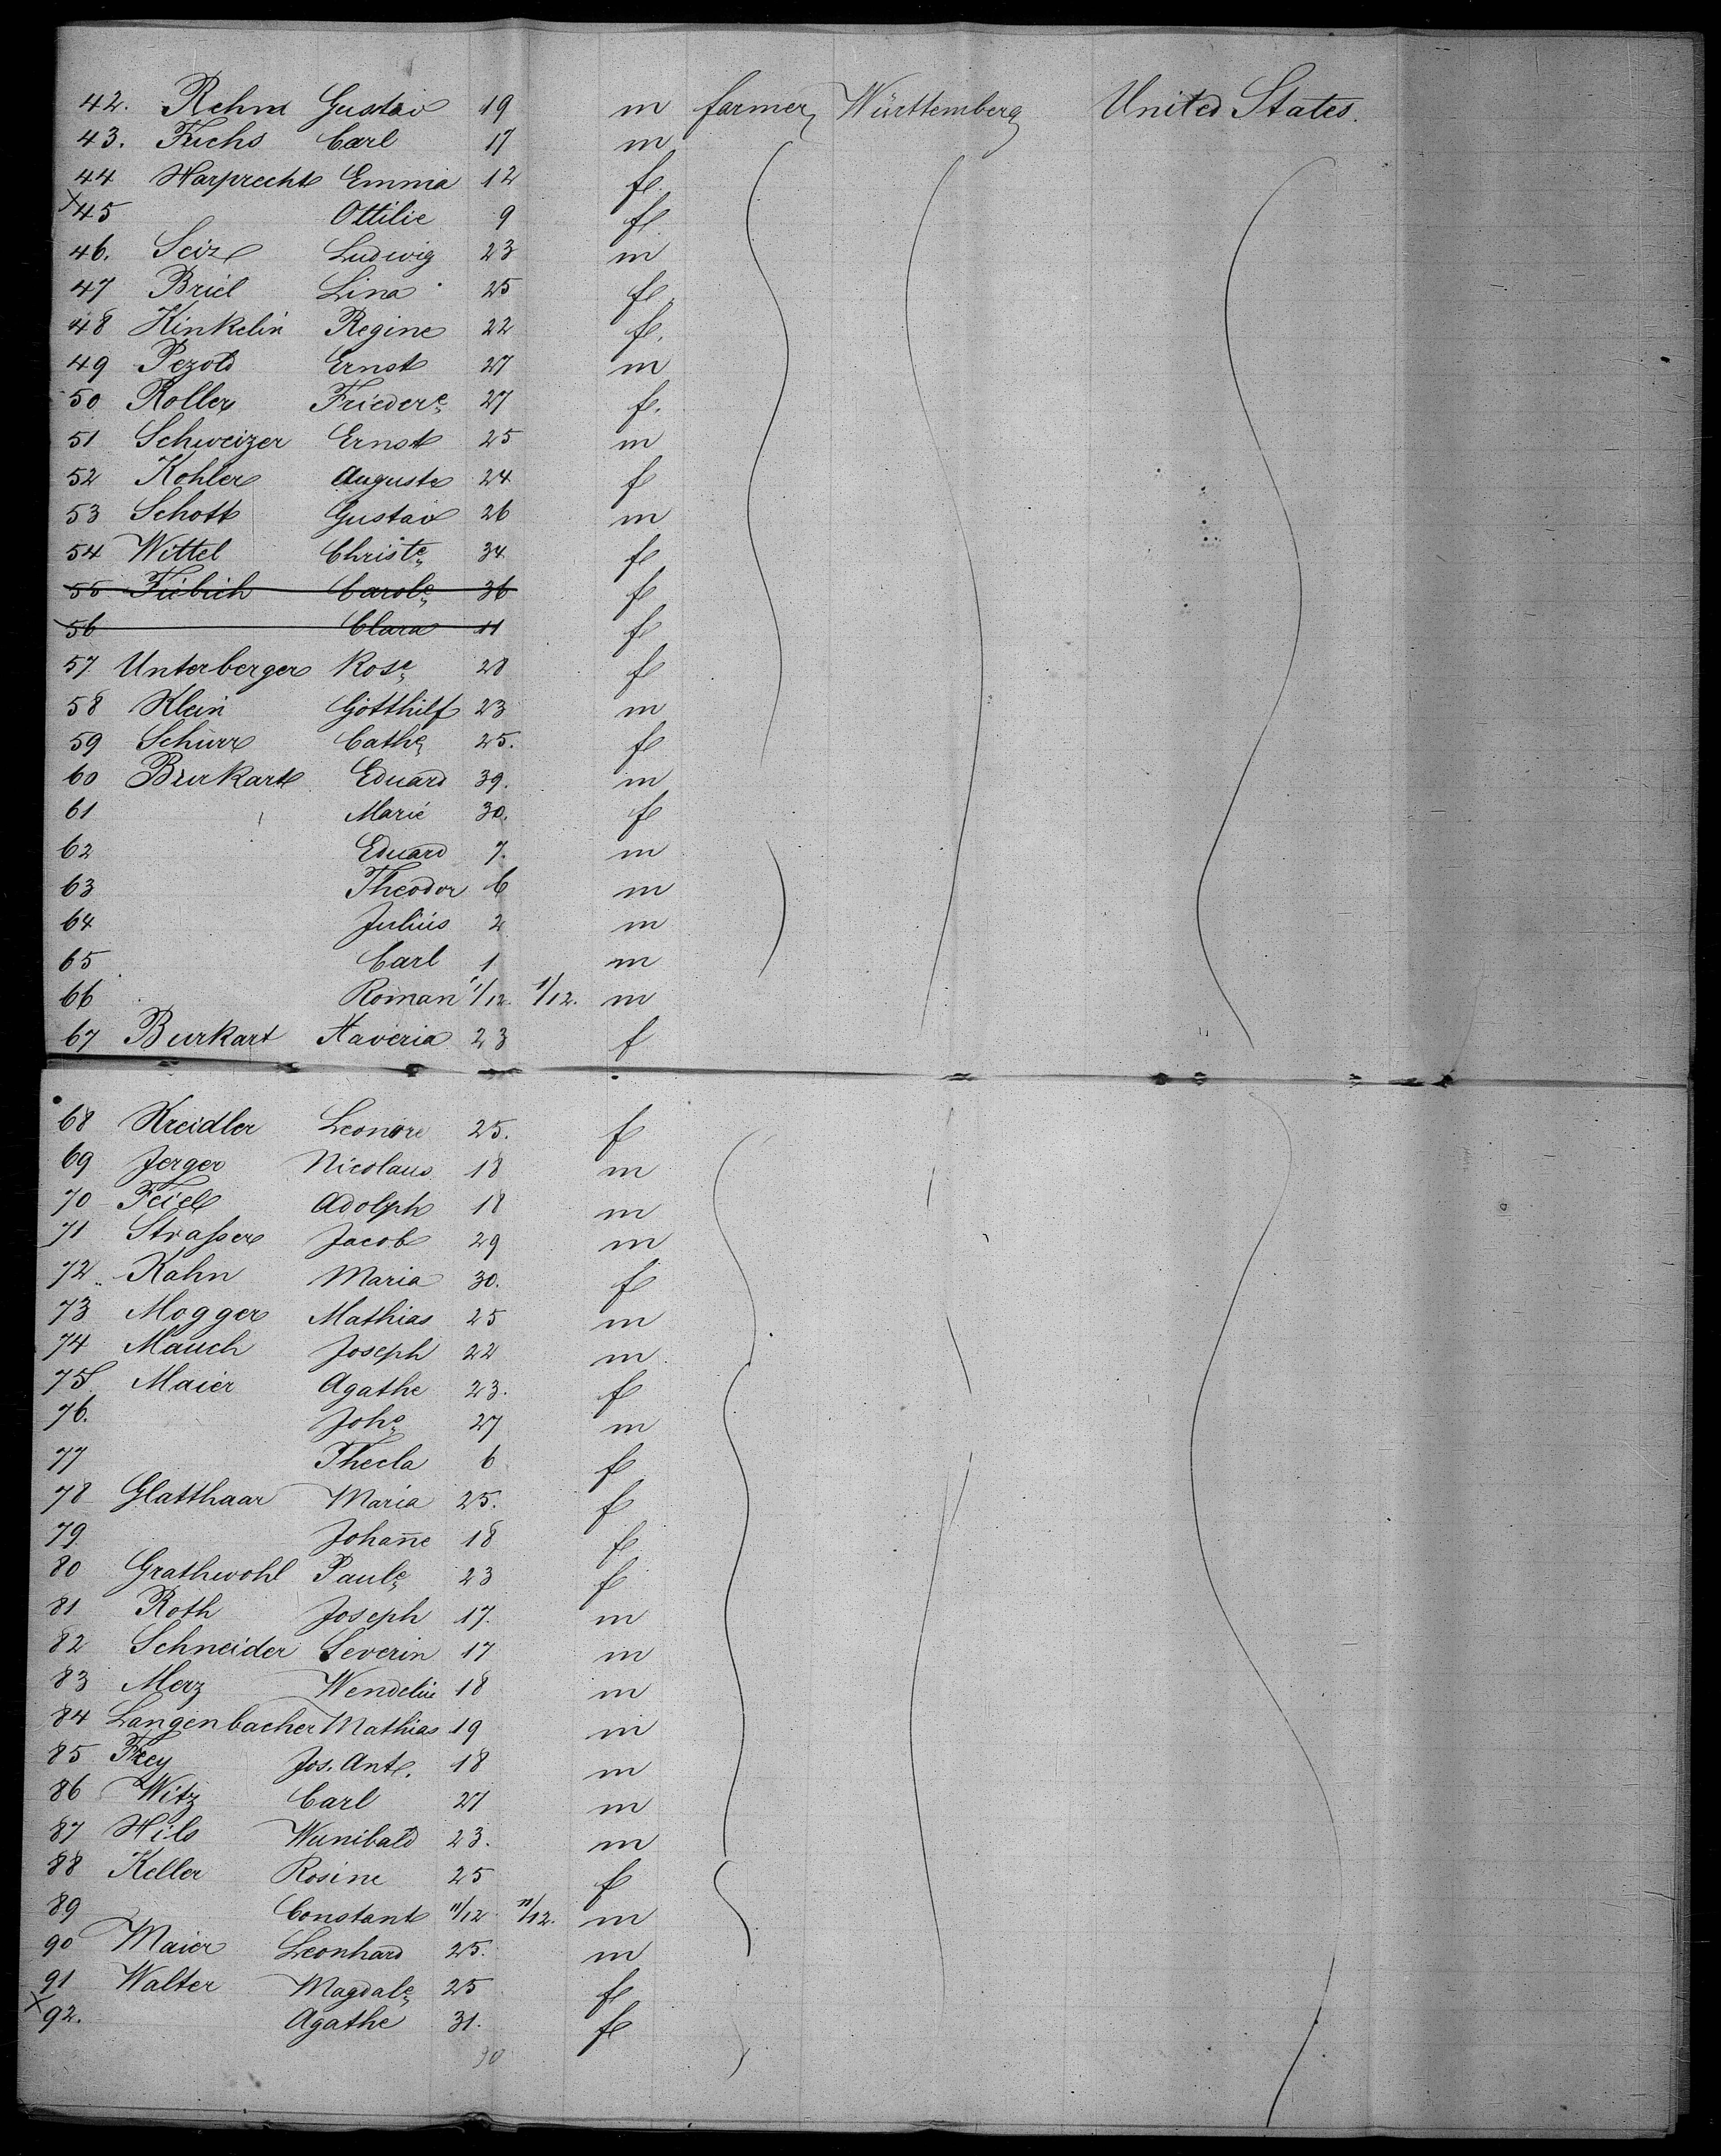 42. Rehm Gustav 19 m farmer Württemberg United States.
43. Fuchs Carl 17 m
44 Harprecht Emma 12 fe.
x45 Ottilie 9 fe.
46. Seiz Ludwig 23 m
47 Briel Lina 25 fe.
48 Kinkelin Regine 22 fe.
49 Pezold Ernst 27 m
50 Roller Friedere 27 f.
51 Schweizer Ernst 25 m
52 Kohler Auguste 24 f
53 Schott Gustav 26 m
54 Wittel Christe 34 fe
55 Fiebich Carole 36 f
56 Clara 11 f
57 Unterberger Rose 28 f
58 Klein Gotthilf 23 m
59 Schurr Cathe 25. fe
60 Burkart Eduard 39. m
61 Marie 30. f
62 Eduard 7. m
63 Theodor 6 m
64 Julius 2 m
65 Carl 1 m
66 Roman 1/12. 1/12. m
67 Burkart Xaveria 23 f
68 Kreidler Leonore 25. f
69 Jerger Nicolaus 18 m
70 Feiel Adolph 18 m
71 Strasser Jacob 29 m
72 Kahn Maria 30. f
73 Mogger Mathias 25 m
74 Mauch Joseph 22 m
75 Maier Agathe 23. f
76. Johe 27 m
77 Thecla 6 f
78 Glatthaar Maria 25. f
79 Johan̄e 18 f
80 Grathwohl Paule 23 f
81 Roth Joseph 17. m
82 Schneider Severin 17 m
83 Merz Wendelin 18 m
84 Langenbacher Mathias 19 m
85 Frey Jos. Ant. 18 m
86 Witz Carl 27 m
87 Hils Wunibald 23. m
88 Keller Rosine 25 f
89 Constant 11/12 11/12. m
90 Maier Leonhard 25. m
91 Walter Magdale 25 fe
x92. Agathe 31. fe
90